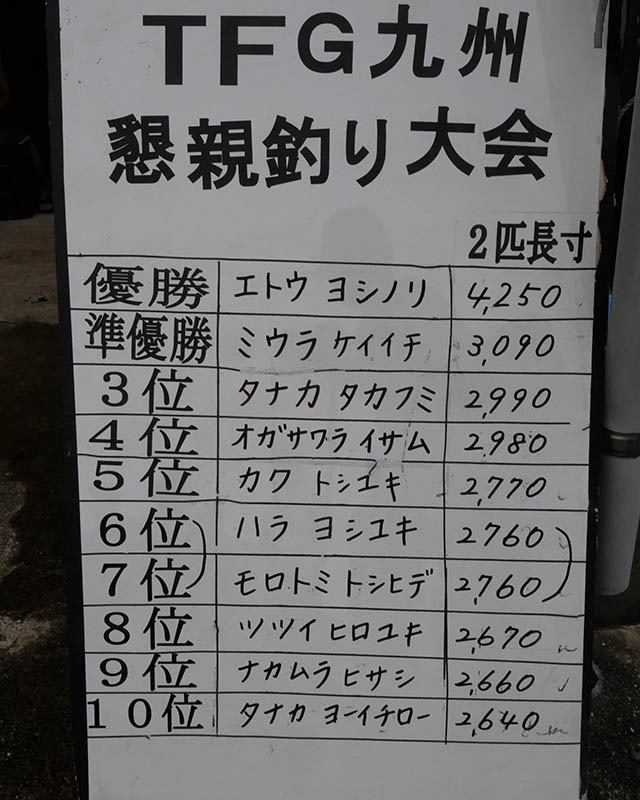 TFG九州
懇親釣り大会
2匹長寸
優勝 エトウ ヨシノリ 4,250
準優勝 ミウラ ケイイチ 3,090
3位 タナカ タカフミ 2,990
4位 オガサワラ イサム 2,980
5位 カク トシユキ 2,770
6位 ハラ ヨシユキ 2760
7位 モロトミ トシヒデ 2,760
8位 ツツイ ヒロユキ 2,670
9位 ナカムラ ヒサシ 2,660
10位 タナカ ヨーイチロー 2,640